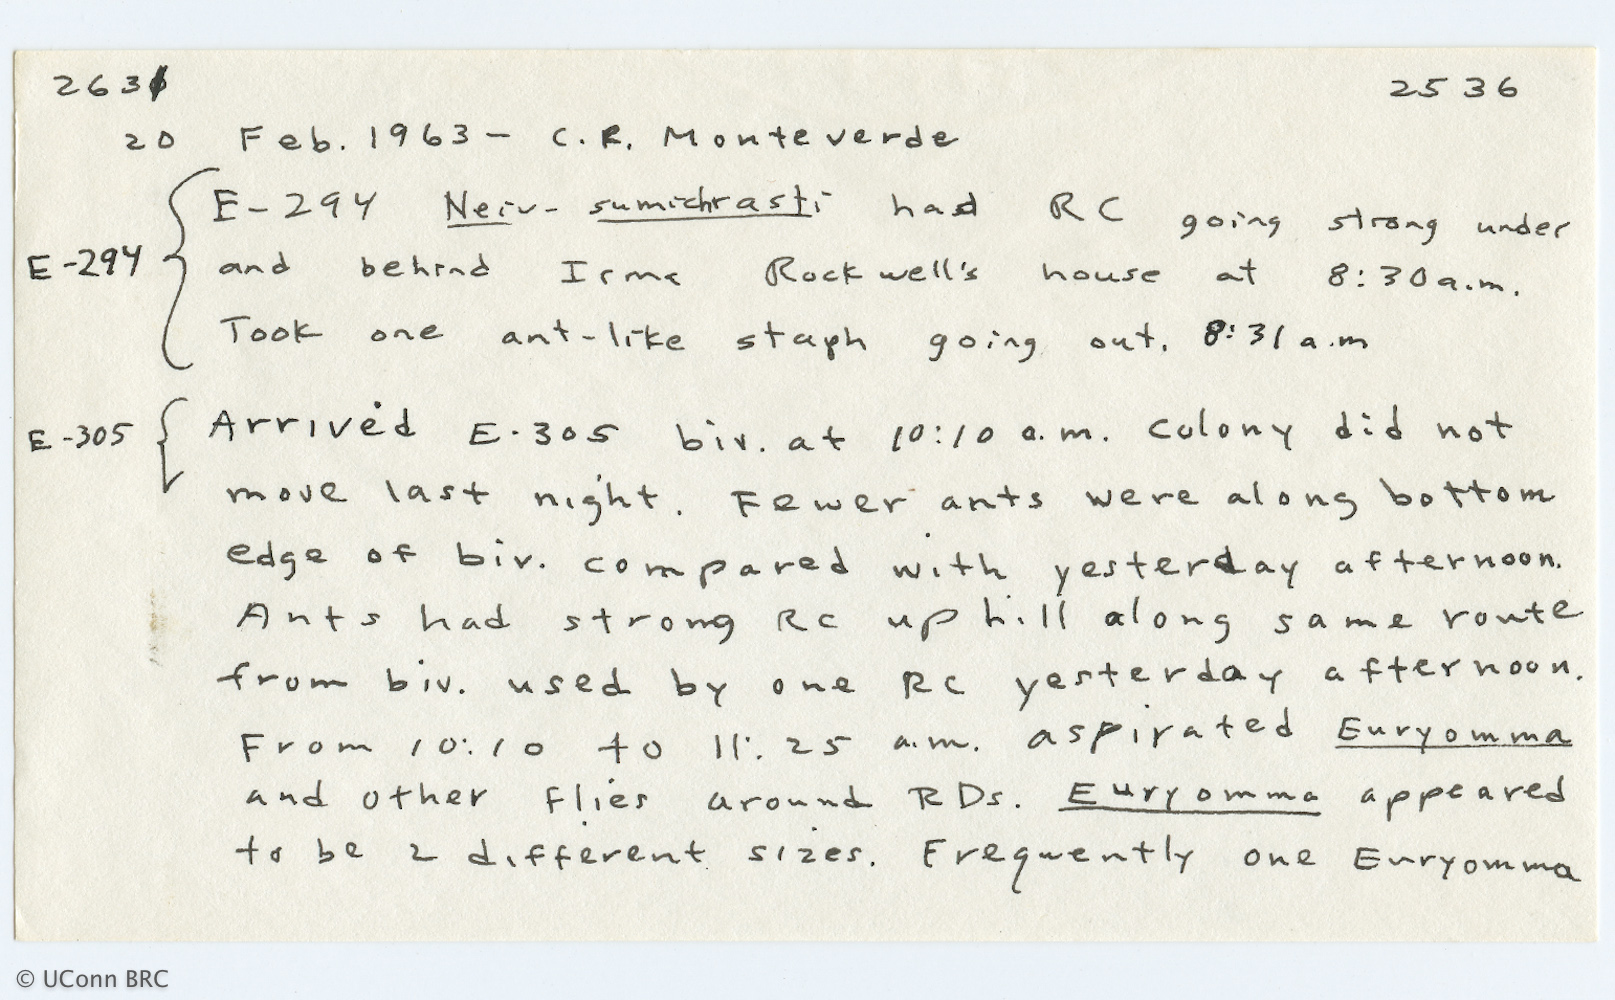 2631 2536
20 Feb. 1963 - C.R. Monteverde
E-294 Neiv- sumichrasti had RC going strong under
E-294 and behind Irma Rockwell's house at 8:30 a.m.
Took one ant-like staph going out. 8:31 a.m
E-305 Arrived E-305 biv. at 10:10 a.m. Colony did not
move last night. Fewer ants were along bottom
edge of biv. compared with yesterday afternoon.
Ants had strong RC uphill along same route
from biv. used by one RC yesterday afternoon.
From 10:10 to 11:25 a.m. aspirated Euryomma
and other flies around RDs. Euryomma appeared
to be 2 different sizes. Frequently one Euryomma
© UConn BRC